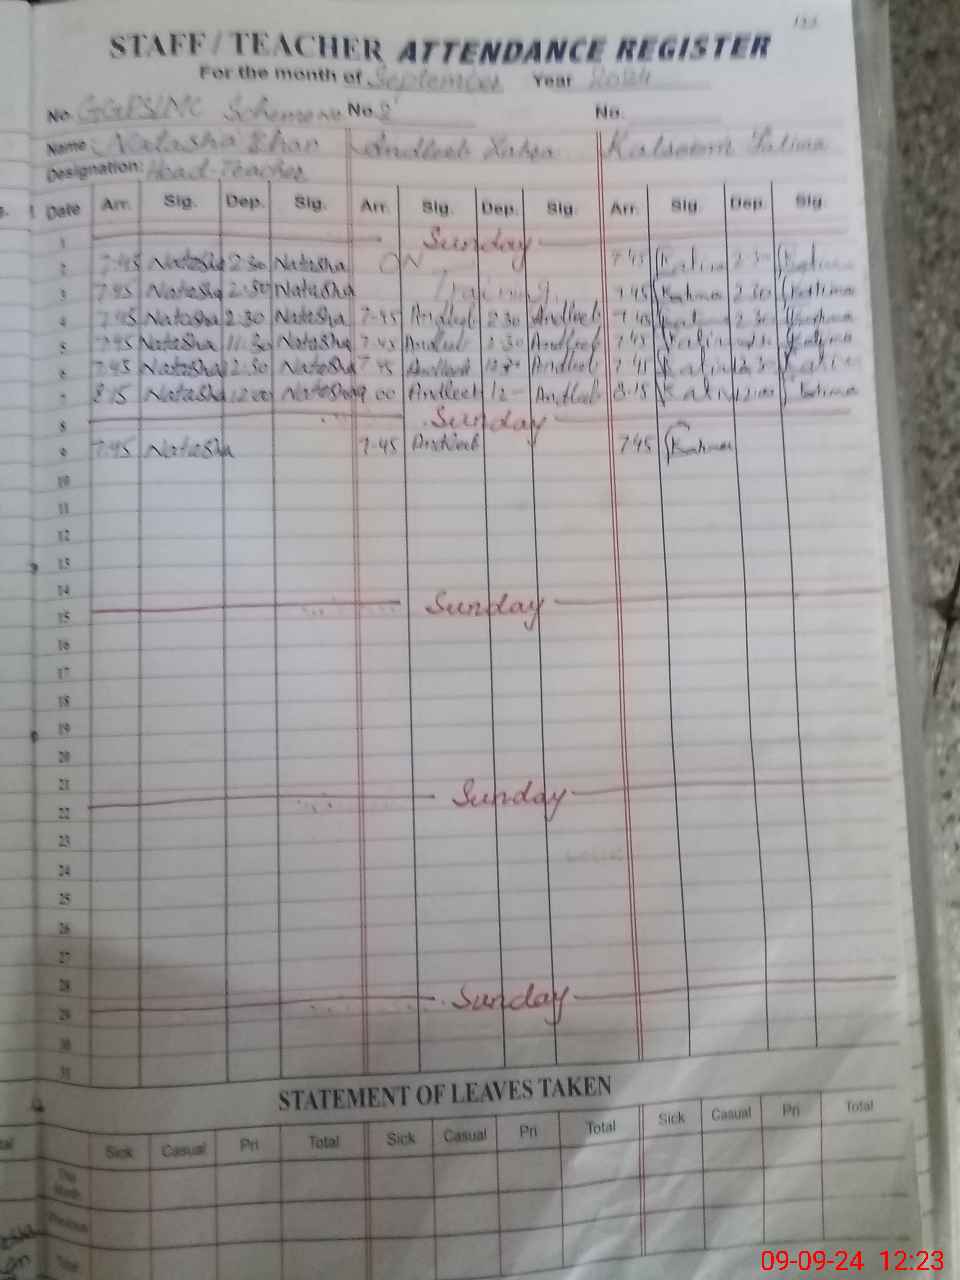 STAFF / TEACHER ATTENDANCE REGISTER
For the month of September Year 2024
No. GGPS/MC Scheme No. No. 8 No.
Name Natasha Khan Andleeb Zahra Kalsoom Fatima
Designation: Head-Teacher
Date Arr. Sig. Dep. Sig. Arr. Sig. Dep. Sig. Arr. Sig. Dep. Sig.
1 Sunday
2 7:45 Natasha 2:30 Natasha ON 7:45 Fatima 2:30 Fatima
3 7:45 Natasha 2:30 Natasha Training 7:45 2:30 Fatima
4 7:45 Natasha 2:30 Natasha 7:45 Andleeb 2:30 Andleeb 7:45 2:30
5 7:45 Natasha 11:30 Natasha 7:45 Andleeb Andleeb 7:45 Fatima Fatima
6 7:45 Natasha 12:30 Natasha 7:45 Andleeb Andleeb 7:45 Fatima 12:30 Fatima
7 8:15 Natasha 12:00 Natasha 9:00 Andleeb 12- Andleeb 8:15 Fatima 12:00 Fatima
8 Sunday
9 7:45 Natasha 7:45 Andleeb 7:45
10
11
12
13
14
15 Sunday
16
17
18
19
20
21
22 Sunday
23
24
25
26
27
28
29 Sunday
30
31
STATEMENT OF LEAVES TAKEN
Sick Casual Pri Total Sick Casual Pri Total Sick Casual Pri Total
This Month
Previous
Total
09-09-24 12:23